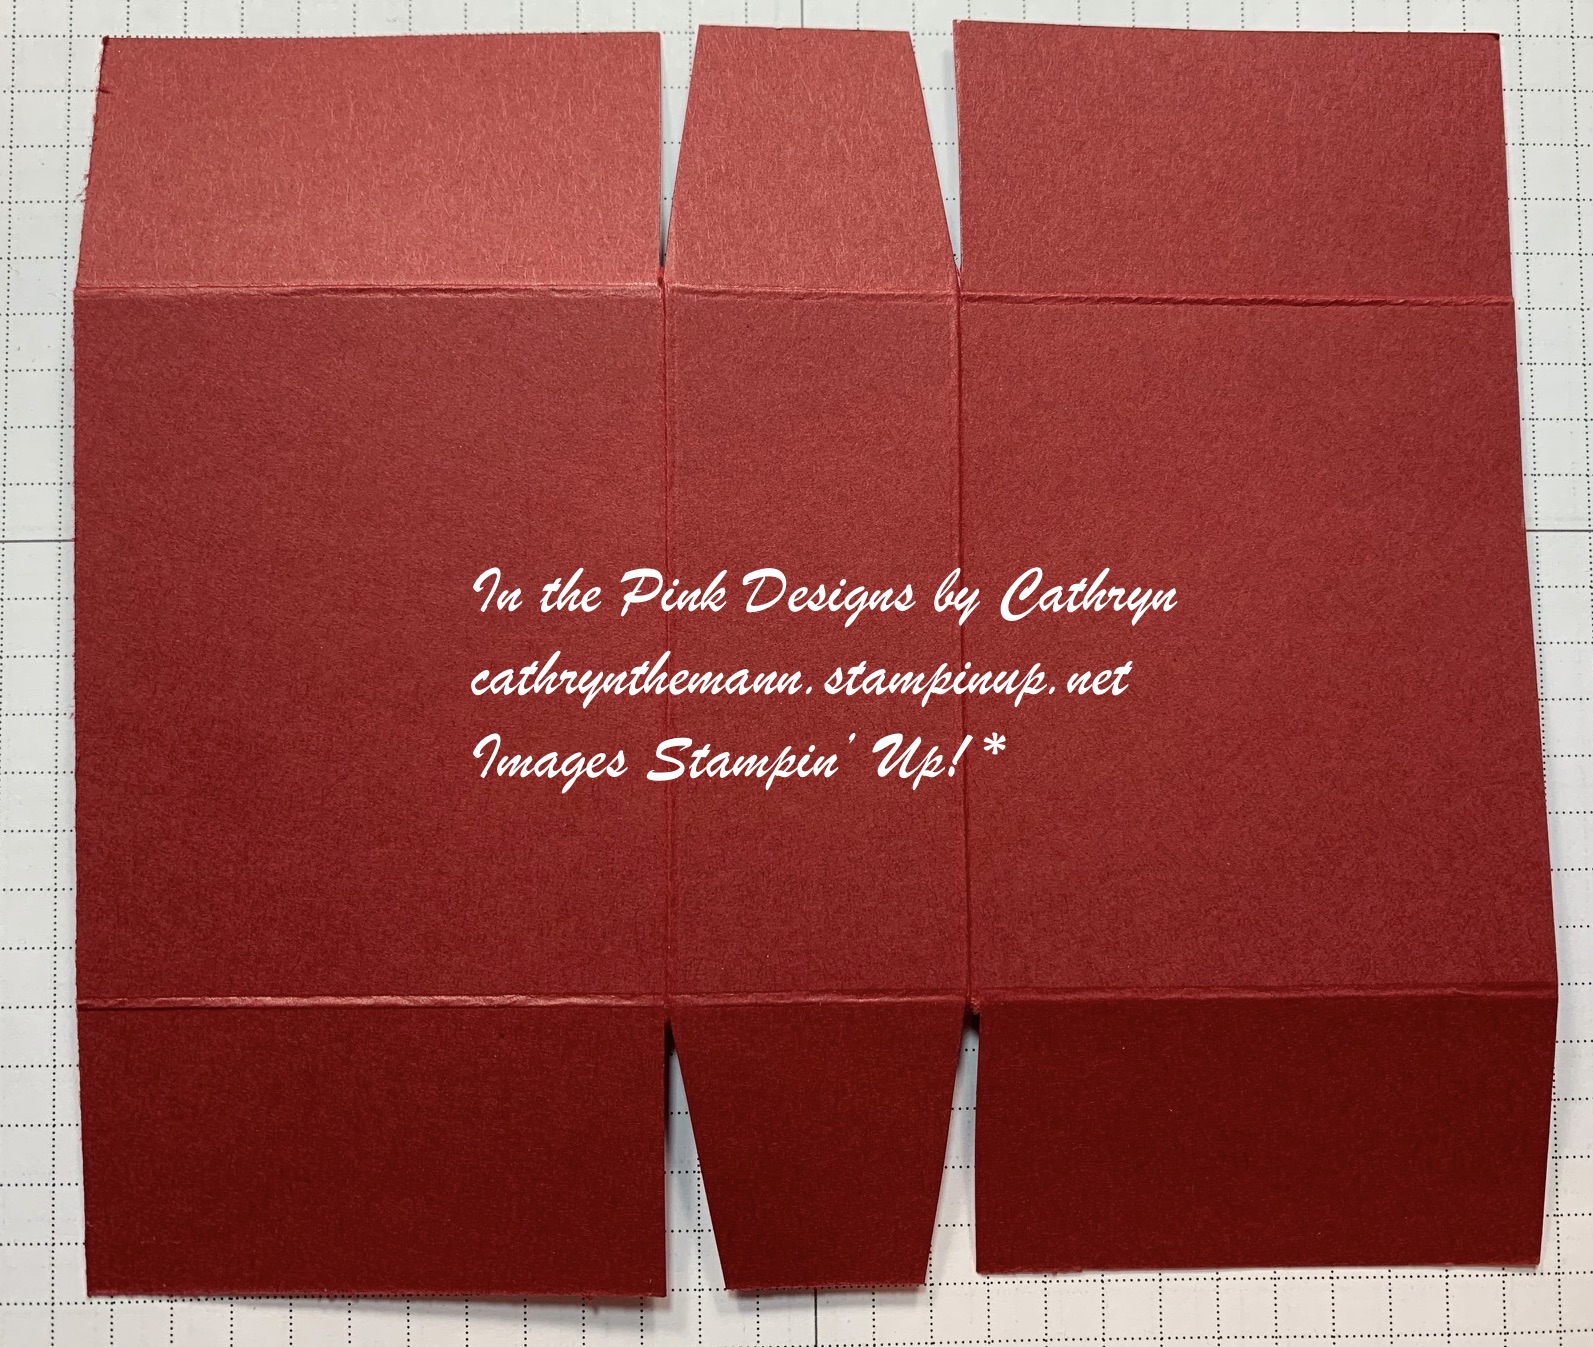 In the Pink Designs by Cathryn
cathrynthemann.stampinup.net
Images Stampin' Up! *